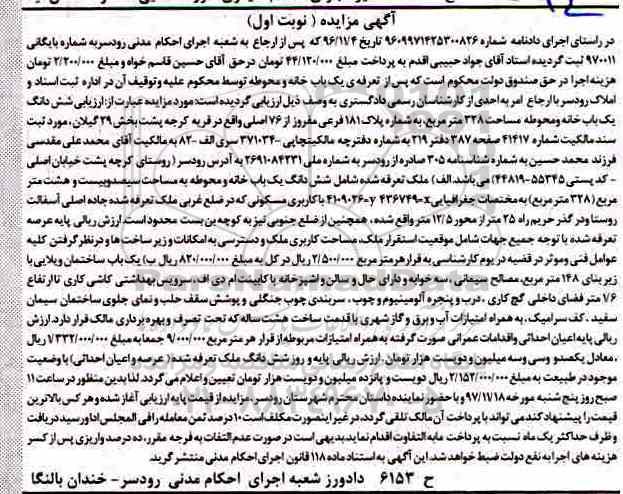 آگهی مزایده ( نوبت اول)
در راستای اجرای دادنامه شماره ۹۶۰۹۹۷۱۴۲۵۳۰۰۸۲۶ تاریخ ۹۶/۱۱/۴ که پس از ارجاع به شعبه اجرای احکام مدنی رودسر به شماره بایگانی
۹۷۰۰۱۱ ثبت گردیده استاد آقای جواد حبیبی اقدم به پرداخت مبلغ ۴۴/۱۲۰/۰۰۰ تومان در حق آقای حسین قاسم خواه و مبلغ ۲/۲۰۰/۰۰۰ تومان
هزینه اجرا در حق صندوق دولت محکوم است که پس از تعرفه ی یک باب خانه و محوطه توسط محکوم علیه و توقیف آن در اداره ثبت اسناد و
املاک رودسر با ارجاع امر به احدی از کارشناسان رسمی دادگستری به وصف ذیل ارزیابی گردیده است: مورد مزایده عبارت از: ارزیابی شش دانگ
یک باب خانه و محوطه مساحت ۳۲۸ متر مربع، به شماره پلاک ۱۸۱ فرعی مفروز از ۷۶ اصلی واقع در قریه کرجه پشت بخش ۲۹ گیلان، مورد ثبت
سند مالکیت شماره ۴۱۴۱۷ صفحه ۳۸۷ دفتر ۲۱۹ به شماره دفترچه مالکیتچاپی ۳۷۱۰۳۴- سری الف -۸۲ به مالکیت آقای محمد علی مقدسی
فرزند محمد حسین به شماره شناسنامه ۳۰۵ صادره از رودسر به شماره ملی ۲۶۹۱۰۸۴۲۳۱ به آدرس رودسر ( روستای کرچه پشت خیابان اصلی
- کد پستی ۵۵۳۴۵-۴۴۸۱۹) می باشد. الف) ملک تعرفه شده شامل شش دانگ یک باب خانه و محوطه به مساحت سیصدوبیست و هشت متر
مربع (۳۲۸ متر مربع) به مختصات جغرافیایی x=۴۳۶۷۴۹ y=۴۱۰۹۰۲۶ با کاربری مسکونی که در ضلع غربی ملک تعرفه شده جاده اصلی آسفالت
روستا و در گذر حریم راه ۲۵ متر از محور ۱۲/۵ متر واقع شده ، همچنین از ضلع جنوبی نیز به کوچه بن بست محدود است. ارزش ریالی پایه عرصه
تعرفه شده با توجه جمیع جهات شامل موقعیت استقرار ملک، مساحت کاربری ملک و دسترسی به امکانات و زیر ساخت ها و در نظر گرفتن کلیه
عوامل فنی و موثر در قضیه در یوم کارشناسی به قرار هر متر مربع ۲/۵۰۰/۰۰۰ ریال در کل به مبلغ ۸۲۰/۰۰۰/۰۰۰ ریال ب) یک باب ساختمان ویلایی با
زیر بنای ۱۴۸ متر مربع، مصالح سیمانی ، سه خوابه و دارای حال و سالن و آشپزخانه با کابینت ام دی اف، سرویس بهداشتی کاشی کاری تا ارتفاع
۷۶ متر فضای داخلی گچ کاری ، درب و پنجره آلومینیوم و چوب ، سربندی چوب جنگلی و پوشش سقف حلب و نمای جلوی ساختمان سیمان
سفید ، کف سرامیک، به همراه امتیازات آب و برق و گاز شهری با قدمت ساخت هشت ساله که تحت تصرف و بهره برداری مالک قرار دارد. ارزش
ریالی پایه اعیان احداثی و اقدامات عمرانی صورت گرفته به همراه امتیازات مربوطه از قرار هر متر مربع ۹/۰۰۰/۰۰۰ جمعا به مبلغ ۱/۳۳۲/۰۰۰/۰۰۰ ریال
، معادل یکصدو وسی وسه میلیون و دویست هزار تومان. ارزش ریالی پایه و روز شش دانگ ملک تعرفه شده( عرصه و اعیان احداثی) با وضعیت
موجود در طبیعت به مبلغ ۲/۱۵۲/۰۰۰/۰۰۰ ریال دویست و پانزده میلیون و دویست هزار تومان تعیین و اعلام می گردد. لذا بدین منظور در ساعت ۱۱
صبح روز پنج شنبه مورخه ۹۷/۱۱/۱۸ و با حضور نماینده داستان محترم شهرستان رودسر ، مزایده از قیمت پایه ارزیابی آغاز شده و هر کس بالاترین
قیمت را پیشنهاد کند می تواند با پرداخت آن مالک تلقی گردد، در غیر اینصورت مکلف است ۱۰ درصد ثمن معامله را فی المجلس اداو رسید دریافت
و ظرف حداکثر یک ماه نسبت به پرداخت مابه التفاوت اقدام نماید. بدیهی است در صورت عدم التفات به فرجه مقرر، ده درصد واریزی پس از کسر
هزینه های اجرا به نفع دولت ضبط خواهد شد. این آگهی به استناد ماده ۱۱۸ قانون اجرای احکام مدنی منتشر گردید.
ح ۶۱۵۳ دادورز شعبه اجرای احکام مدنی رودسر- خندان بالنگا